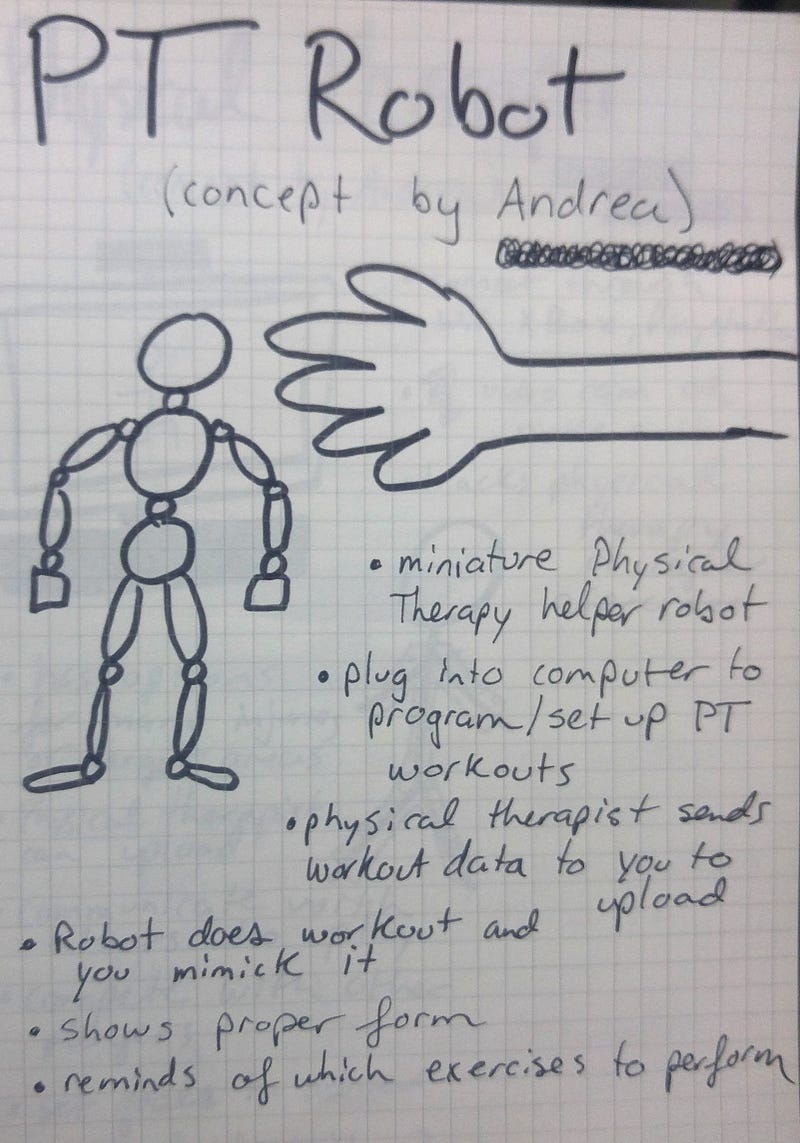 PT Robot
(concept by Andrea)
• miniature Physical
Therapy helper robot
• plug into computer to
program/set up PT
workouts
• physical therapist sends
workout data to you to
upload
• Robot does workout and
you mimick it
• shows proper form
• reminds of which exercises to perform